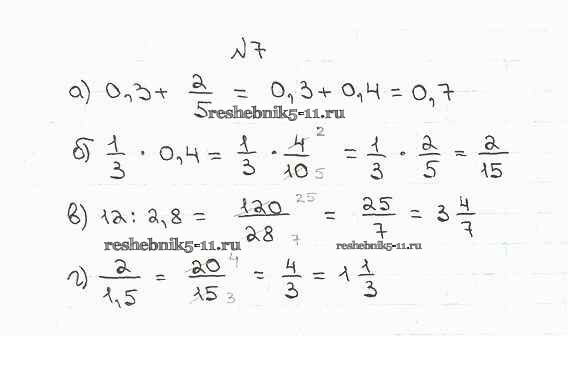 №7
а) 0,3 + 2/5 = 0,3 + 0,4 = 0,7
reshebnik5-11.ru
б) 1/3 · 0,4 = 1/3 · 4/10 2 5 = 1/3 · 2/5 = 2/15
в) 12 : 2,8 = 120/28 25 7 = 25/7 = 3 4/7
reshebnik5-11.ru reshebnik5-11.ru
г) 2/1,5 = 20/15 4 3 = 4/3 = 1 1/3